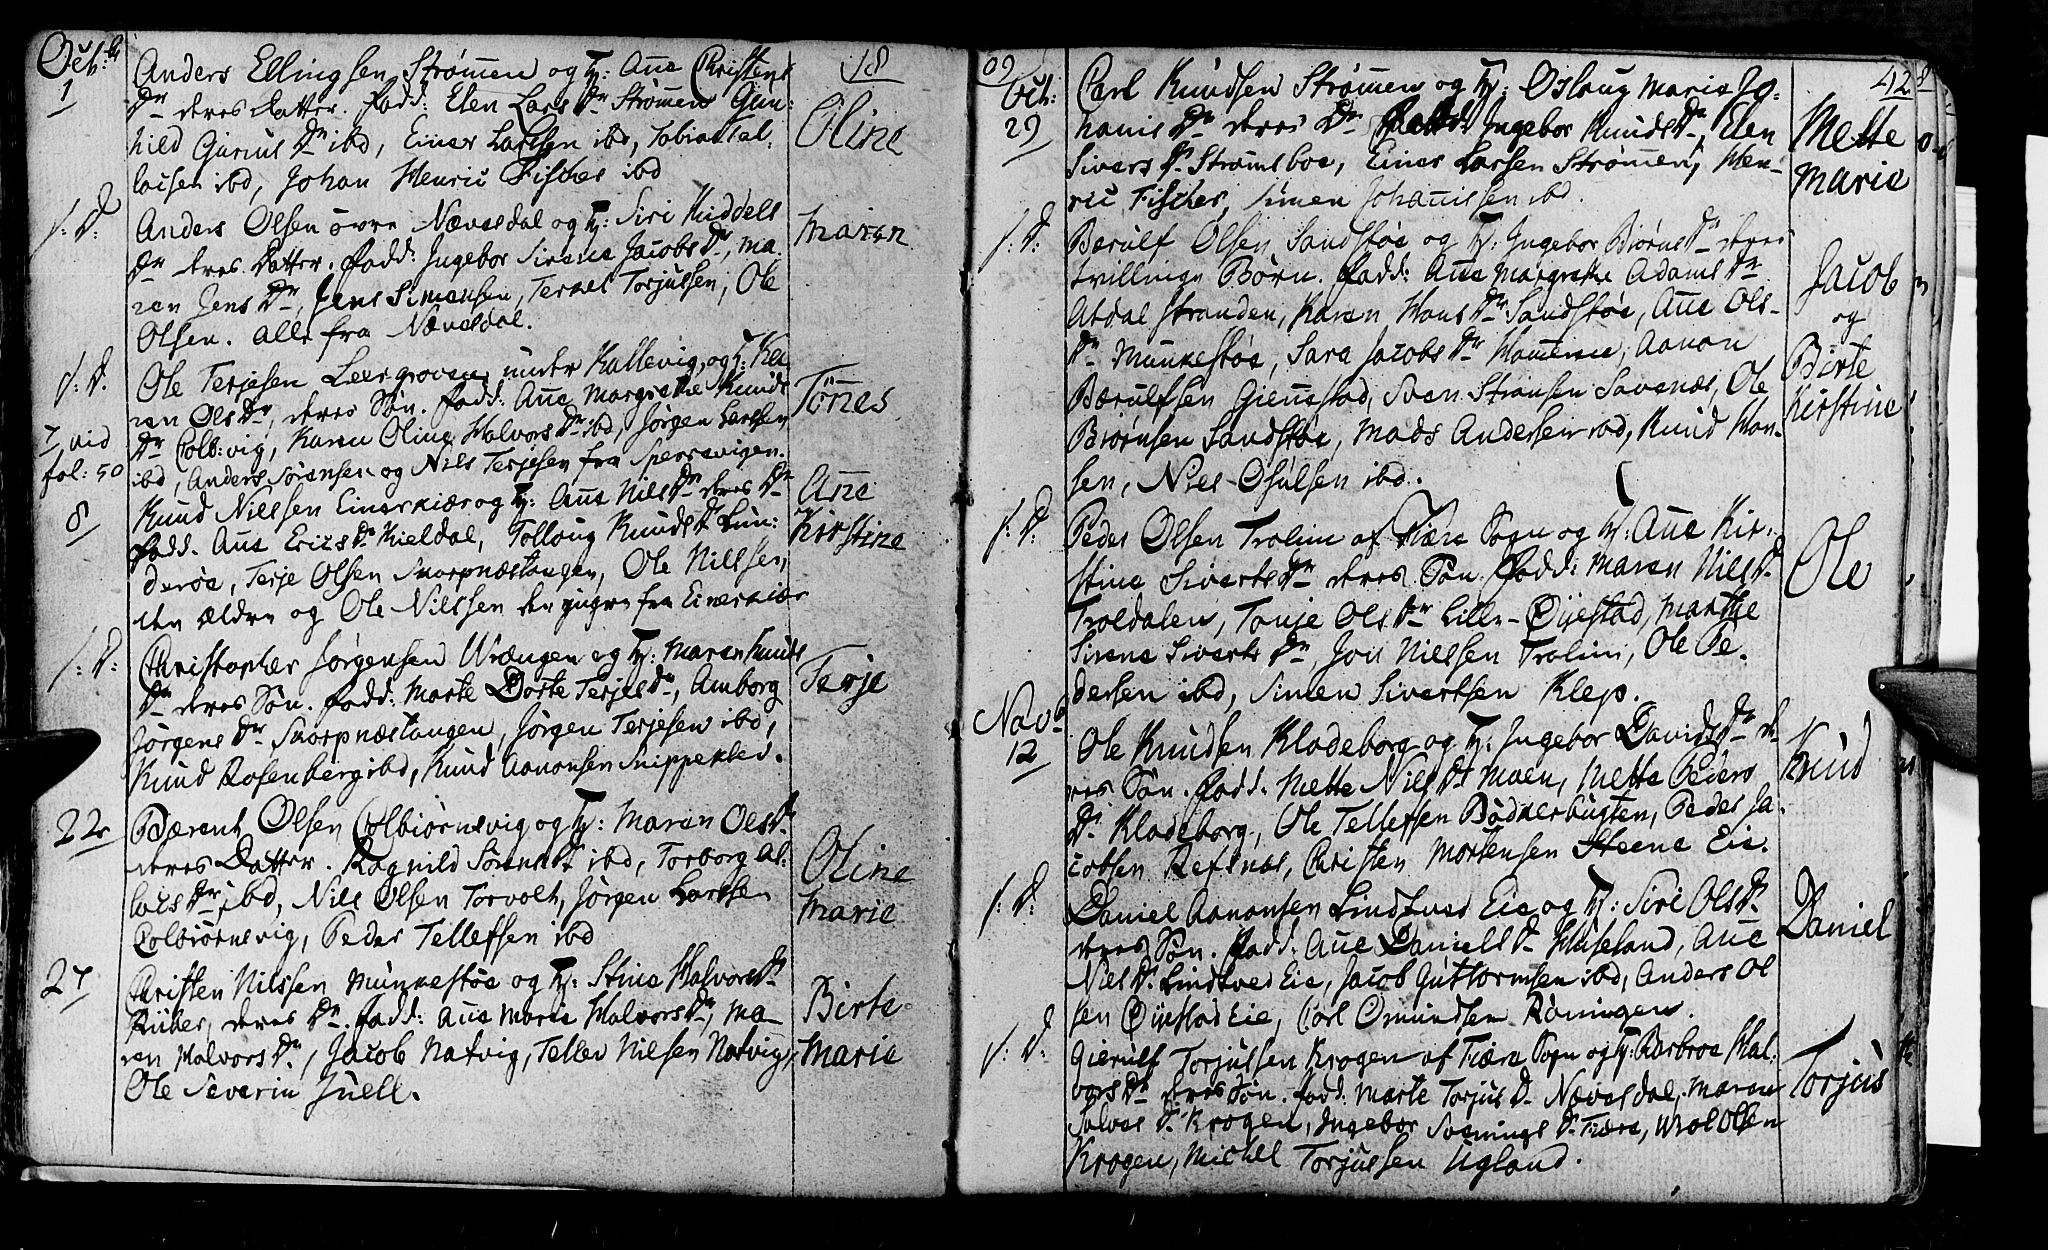 Octbr
1
18
Anders Ellingsen Strømmen og H: Ane Christens
Dr deres Datter. fadd: Elen Lars Dr Strømmen Gun:
hild Gurius Dr ibd, Einer Larssen ibd, Tobias Sal.
laisen ibd, Johan Henric Fischer ibd
Oline
s: D:
Anders Olsen øvre Nævesdal og H: Siri Kiddels
Dr deres Datter. fadd: Ingebor Sirene Jacobs Dr, Ma
ren Jens Dr, Jens Simensen, Terkel Torjussen, Ole
Olsen. alle fra Nævesdal.
Maren
s: D.
Ole Terjesen Leergroven under Kallevig, og H: Ka
ren Ols Dr, deres Søn. fadd: Ane Margrethe Knuds
Dr Colb:vig, Karen Oline Halvors Dr ibd, Jørgen Larssen
ibd, Anders Sørensen og Niels Terjesen fra Sperrevigen.
Tönes
vid
fol: 50
8
Knud Nielsen Einerkiær og H: Ane Nils Dr deres Dr
fadd. Ane Erics Dr Kieldal, Tolloug Knuds Dr Lun:
derøe, Terje Olsen Skarpnæstangen, Ole Nilssen,
den ældre og Ole Nilssen den yngre fra Einerkiær
Ane
Kirstine
s: D:
Christopher Jørgensen Wrængen og H: Maren Knuds
Dr deres Søn. fadd: Marte Dorte Terjes Dr, Amborg
Jørgens Dr Skarpnæstangen, Jørgen Terjesen ibd,
Knud Rosenberg ibd, Knud Aanonsen Snippekled.
Terje
22
Bærent Olsen Colbiørnsvig og H: Maren Oles Dr.
deres Datter. Ragnild Sørens Dr ibd, Torborg Al:
lers Dr ibd, Nils Olsen Torvolt, Jørgen Larssen
Colbiørnsvig, Peder Tellefsen ibd
Oline
Marie
27
Christen Nilssen Munkestøe og H: Stine Halvors Dr
deres Dr. fadd: Ane Marie Halvors Dr, Ma
ren Halvors Dr, Jacob Natvig, Tellev Nilsen Natvig,
Ole Severin Juell.
Birte
Marie
09
42
Oct:
29
Carl Knudsen Strømmen og H: Osloug Maria Jo:
hanis Dr deres Dr fadd: Ingebor Knuds Dr, Elen
Sivers Dr Strømsboe, Einer Larsen Strømmen, Hen-
ric Fischer, Simen Johanissen ibd.
Mette
Marie
s: D:
Berulf Olsen Sandstøe og H: Ingebor Biørns Dr deres
tvillinge Børn. fadd: Ane Margrethe Adams Dr
Atdal stranden, Karen Hans Dr Sandstøe, Ane Ols-
Dr Munkestøe, Sara Jacobs Dr, Aanon
Bærulfsen Gienestad, Sven Stransen Savenæs, Ole
Biørnsen Sandstøe, Mads Andersen ibd, Knud Han-
sen, Niels Osulsen ibd.
Jacob
og
Birte
Kirstine
s: D:
Peder Olsen Trolim af Fiære Sogn og H: Ane Kir-
stine Siverts Dr deres Søn. fadd: Maren Nils Dr
Troldalen, Tonje Ols Dr Lille-Øyestad, Marthe
Sirene Siverts Dr, Jon Nielsen Trolim, Ole Pe.
dersen ibd, Simen Sivertsen Klep.
Ole
Novb
12
Ole Knudsen Kladeborg og H: Ingebor Davids Dr de
res Søn. fadd. Mette Nils Dr Moen, Mette Peders
Dr Kladeborg, Ole Tellefsen Bødkerbugten, Peder Ja
cobsen Refsnæs, Christen Mortensen Steene Eie.
Knud
s: D.
Daniel Aanonsen Lindtved Eie og H: Siri Ols Dr
deres Søn. fadd: Ane Daniels Dr Huseland, Ane
Niels Dr Lindtved Eie, Jacob Guttormsen ibd, Anders Ol
sen Øyestad Eie, Carl Omundsen Röningen.
Daniel
s: D:
Gierulf Torjussen Krogen af Fiære Sogn og H: Barbroe Hal.
vors Dr deres Søn. fadd: Marte Torjus Dr Nævesdal, Maren
Salves Dr Krogen, Ingebor Svenings Dr Fiære, Olsen
Krogen, Michel Torjussen Ugland.
Torjus